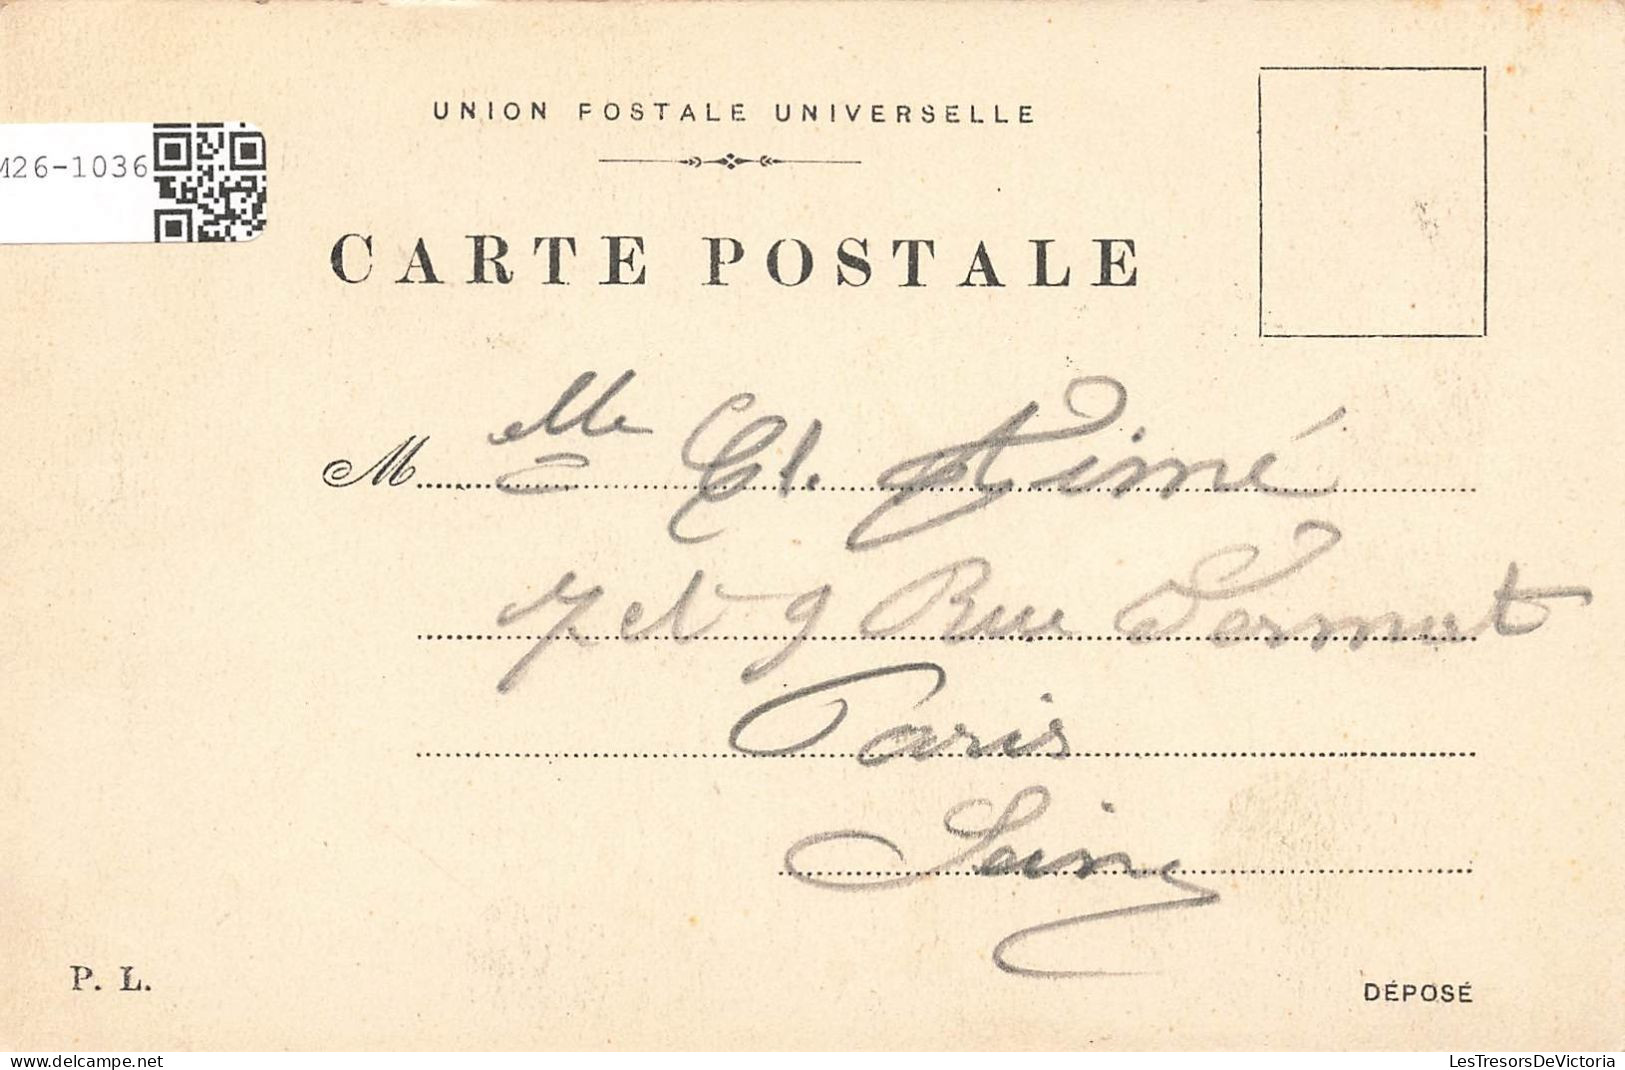 UNION POSTALE UNIVERSELLE
M26-1036
CARTE POSTALE
Melle Cl. Aimé
7 et 9 Rue
Paris
Seine
P. L.
DÉPOSÉ
https://www.delcampe.net
LesTresorsDeVictoria